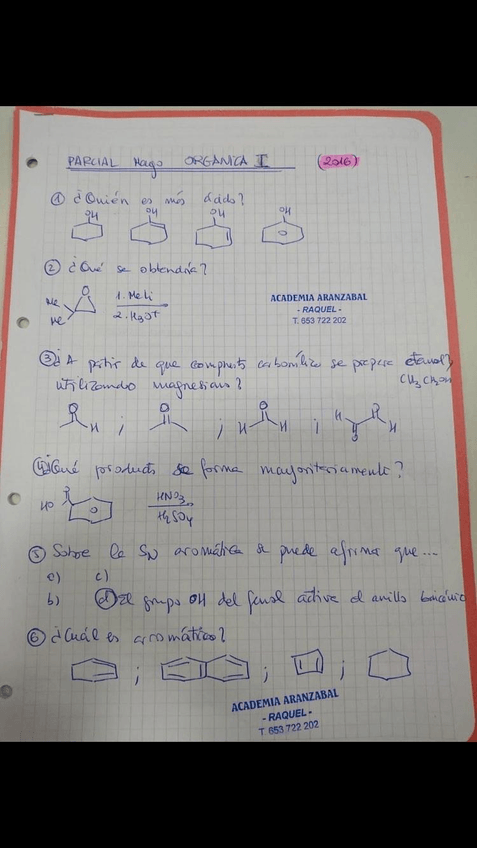 PARCIAL Mayo ORGANICA I (2016)
① ¿Quién es más ácido?
OH OH OH OH
② ¿Qué se obtendría?
Me O 1. MeLi
Me 2. H3O+
ACADEMIA ARANZABAL
- RAQUEL -
T. 653 722 202
③ ¿A partir de que compuesto carbonílico se prepara etanol,
utilizando magnesianos? CH3CH2OH
O H ; O ; O H H ; H H
④ ¿Qué producto se forma mayoritariamente?
HO HNO3
H2SO4
⑤ Sobre la SN aromática se puede afirmar que...
a) c)
b) d) El grupo OH del fenol activa el anillo
⑥ ¿Cuál es aromático?
; ; ;
ACADEMIA ARANZABAL
- RAQUEL -
T. 653 722 202